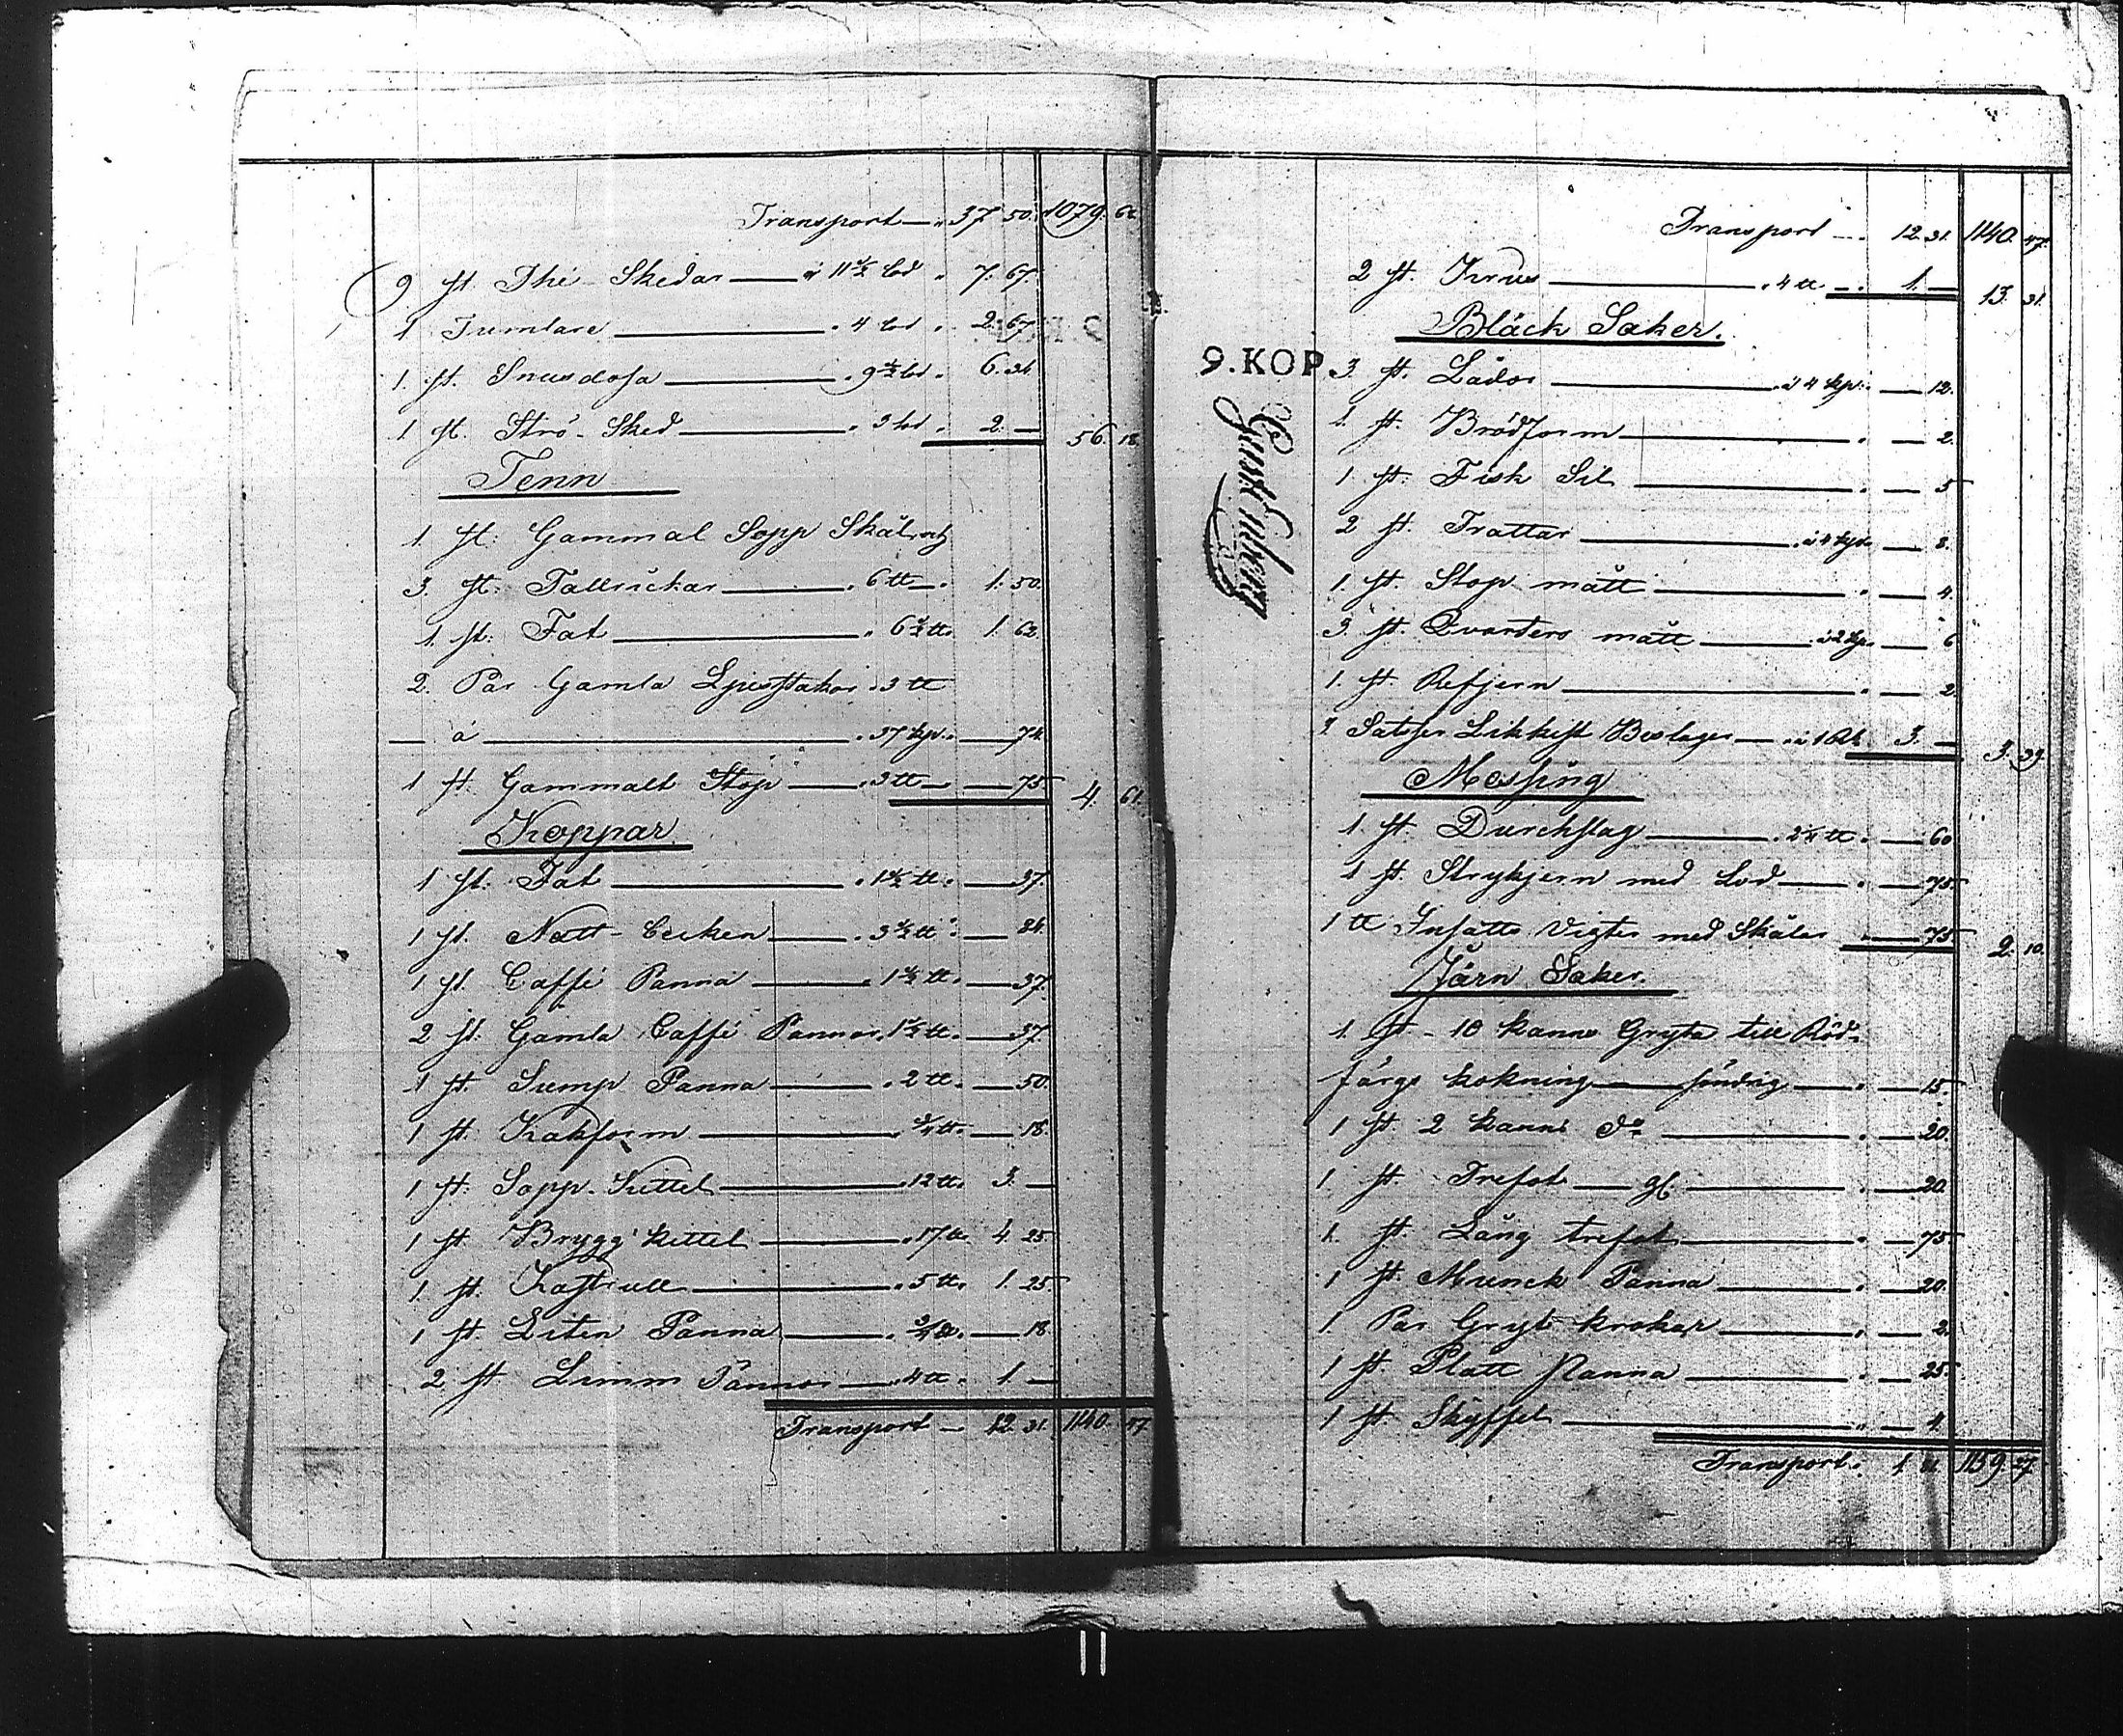 Transport — 37. 50. 1079. 62
9 st. Thé Skedar — à 11½ lod " 7. 67.
1 Tumlare — " 4 lod " 2. 67.
1. st. Snusdosa — " 9½ lod " 6. 34.
1 st. Strö-Sked — " 3 lod " 2. — 56. 18.
Tenn
1. st. Gammal Sopp Skål, och
3. st. Tallrickar — " 6 tt — " 1. 50.
1. st. Fat — " 6½ tt " 1. 62.
2. Par Gamla Ljusstakar " 3 tt
— à — " 37 kp. " — 74.
1 st. Gammalt Stop — " 3 tt — — 75. 4. 61.
Koppar.
1 st. Fat — " 1½ tt. " — 37.
1 st. Natt-Becken — " 3½ tt " — 84.
1 st. Caffé Panna — " 1½ tt. — 37.
2 st. Gamla Caffé Pannor " 1½ tt. — 37.
1 st. Sump Panna — " 2 tt. — 50.
1 st. Kakform — " ¾ tt. — 18.
1 st. Sopp-Kittel — " 12 tt. 3. —
1 st. Brygg kittel — " 17 tt. 4. 25
1. st. Kastrull — " 5 tt. 1. 25.
1 st. Liten Panna — " ¾ tt. — 18.
2 st. Limm Pannor — " 4 tt. 1. —
Transport — 12. 31. 1140. 47.
Transport — 12. 31. 1140. 47.
2 st. Krus — " 4 tt — " 1. — 13. 31.
Bläck Saker.
9. KOP.
3 st. Lådor — à 4 kp. — 12.
1. st. Brödform — " — 2.
1 st. Fisk Sil — " — 5
2 st. Trattar — à 4 kp — 8.
1. st. Stop mått — " — 4.
3. st. Qvarters mått — à 2 kp. — 6
1. st. Refjern — " — 2.
3 Satser Likkist Beslager — à 1 Rd 3. — 3. 39.
Messing
1. st. Durchslag — " 2¼ tt " — 60
1 st. Strykjern med Lod — " — 75.
1 tt Insatts Vigter med Skålar — 75 2. 10.
Järn Saker.
1. st - 10 kanne Gryta till Röd-
färgs kokning — söndrig — " — 15.
1 st. 2 kanns do — " — 20.
1. st. Trefot — gl. — " — 20.
1. st. Lång trefot — " — 75
1 st. Munck Panna — " — 20.
1. Par Gryt krokar — " — 2.
1 st. Platt Panna — " — 25.
1 st. Skyffel — " — 4.
Transport. 1. 81 1159. 27.